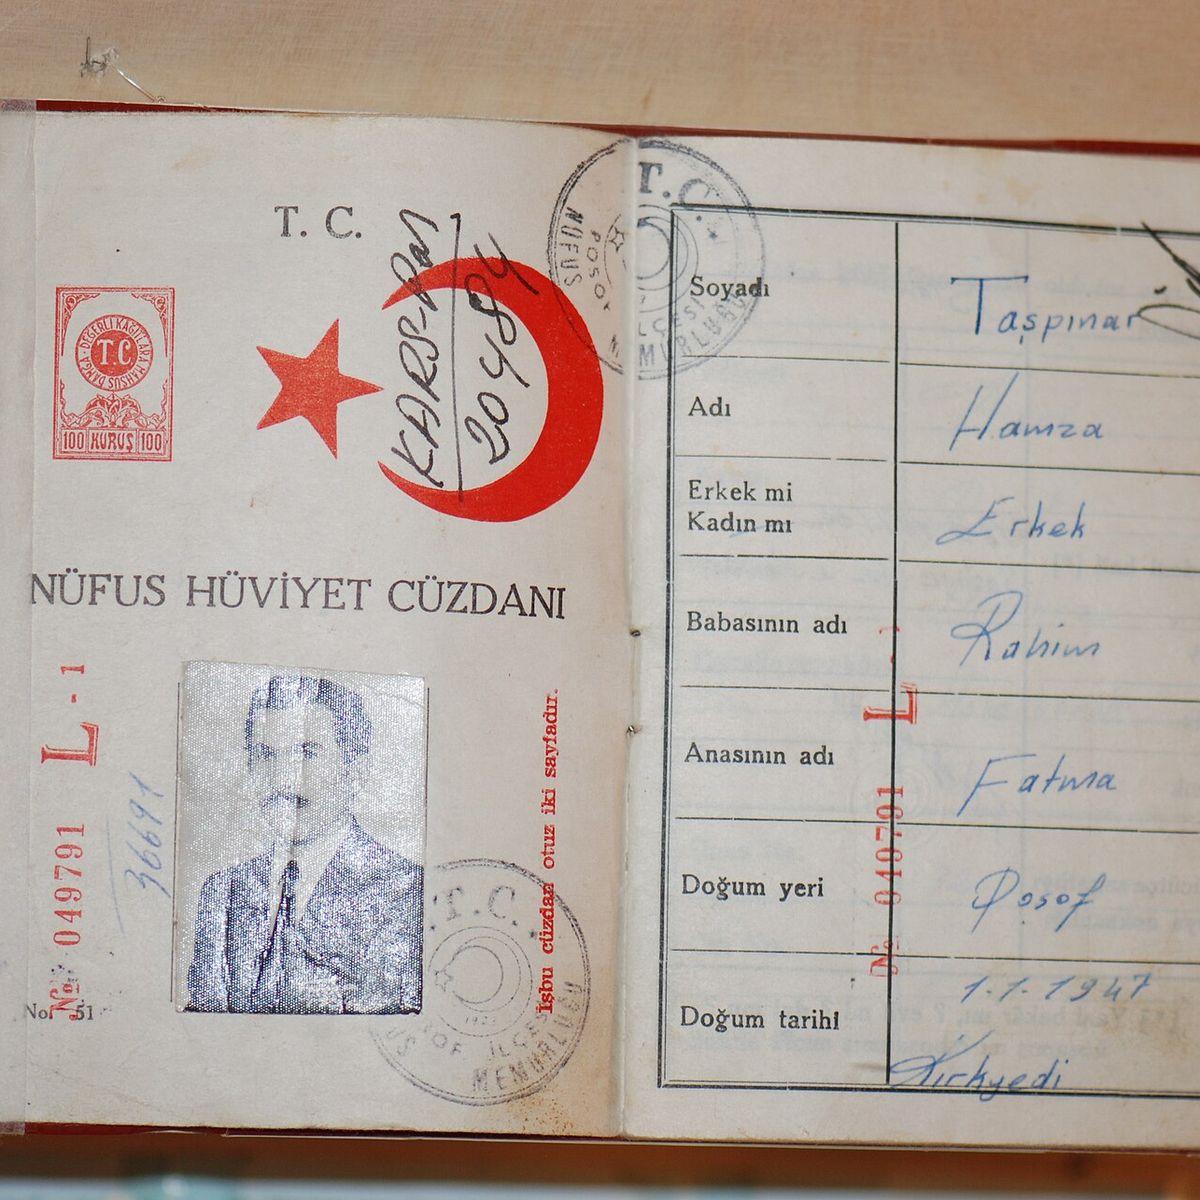 T. C.
KARS-
20484
DAMGA - DEĞERLİ KAĞITLARA MAHSUS
T C
100 KURUŞ 100
NÜFUS HÜVİYET CÜZDANI
L - 1
№ 049791
36691
İşbu cüzdan otuz iki sayfadır.
No. 51
T. C.
POSOF İLÇESİ
NÜFUS MEMURLUĞU
T. C.
POSOF İLÇESİ
NÜFUS MEMURLUĞU
Soyadı Taşpınar
Adı Hamza
Erkek mi
Kadın mı Erkek
Babasının adı Rahim
Anasının adı Fatma
Doğum yeri Posof
Doğum tarihi 1.1.1947
Kırkyedi
L
№ 049791